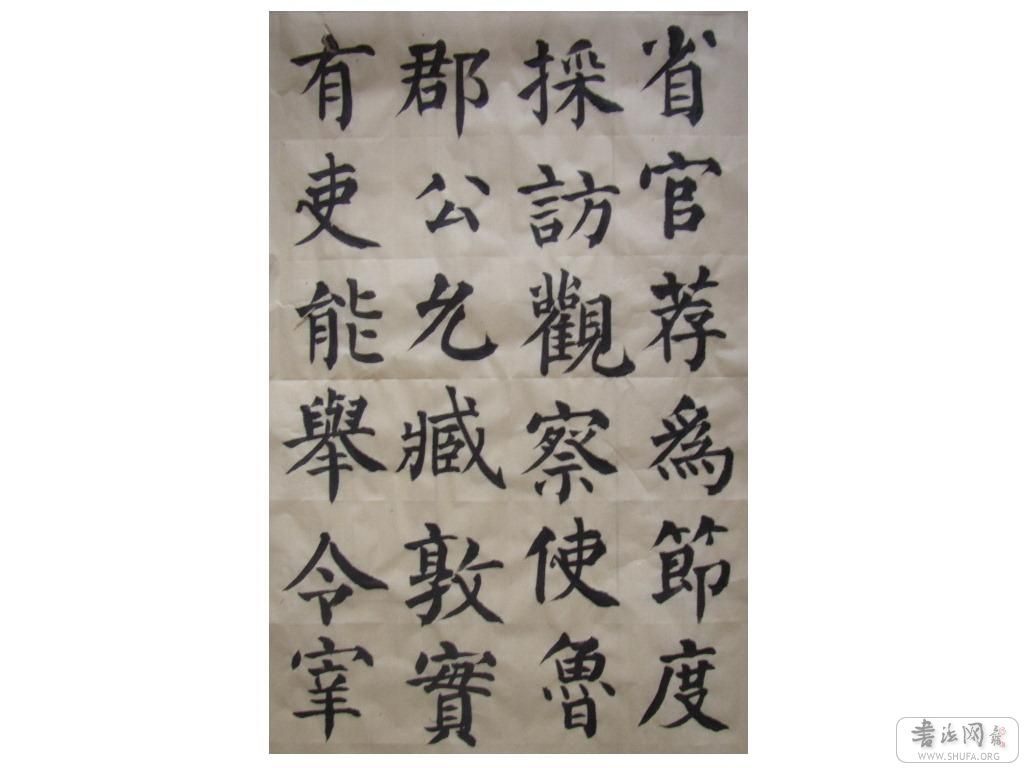 省官荐為節度
採訪觀察使魯
郡公允臧敦實
有吏能舉令宰
書法网
WWW.SHUFA.ORG